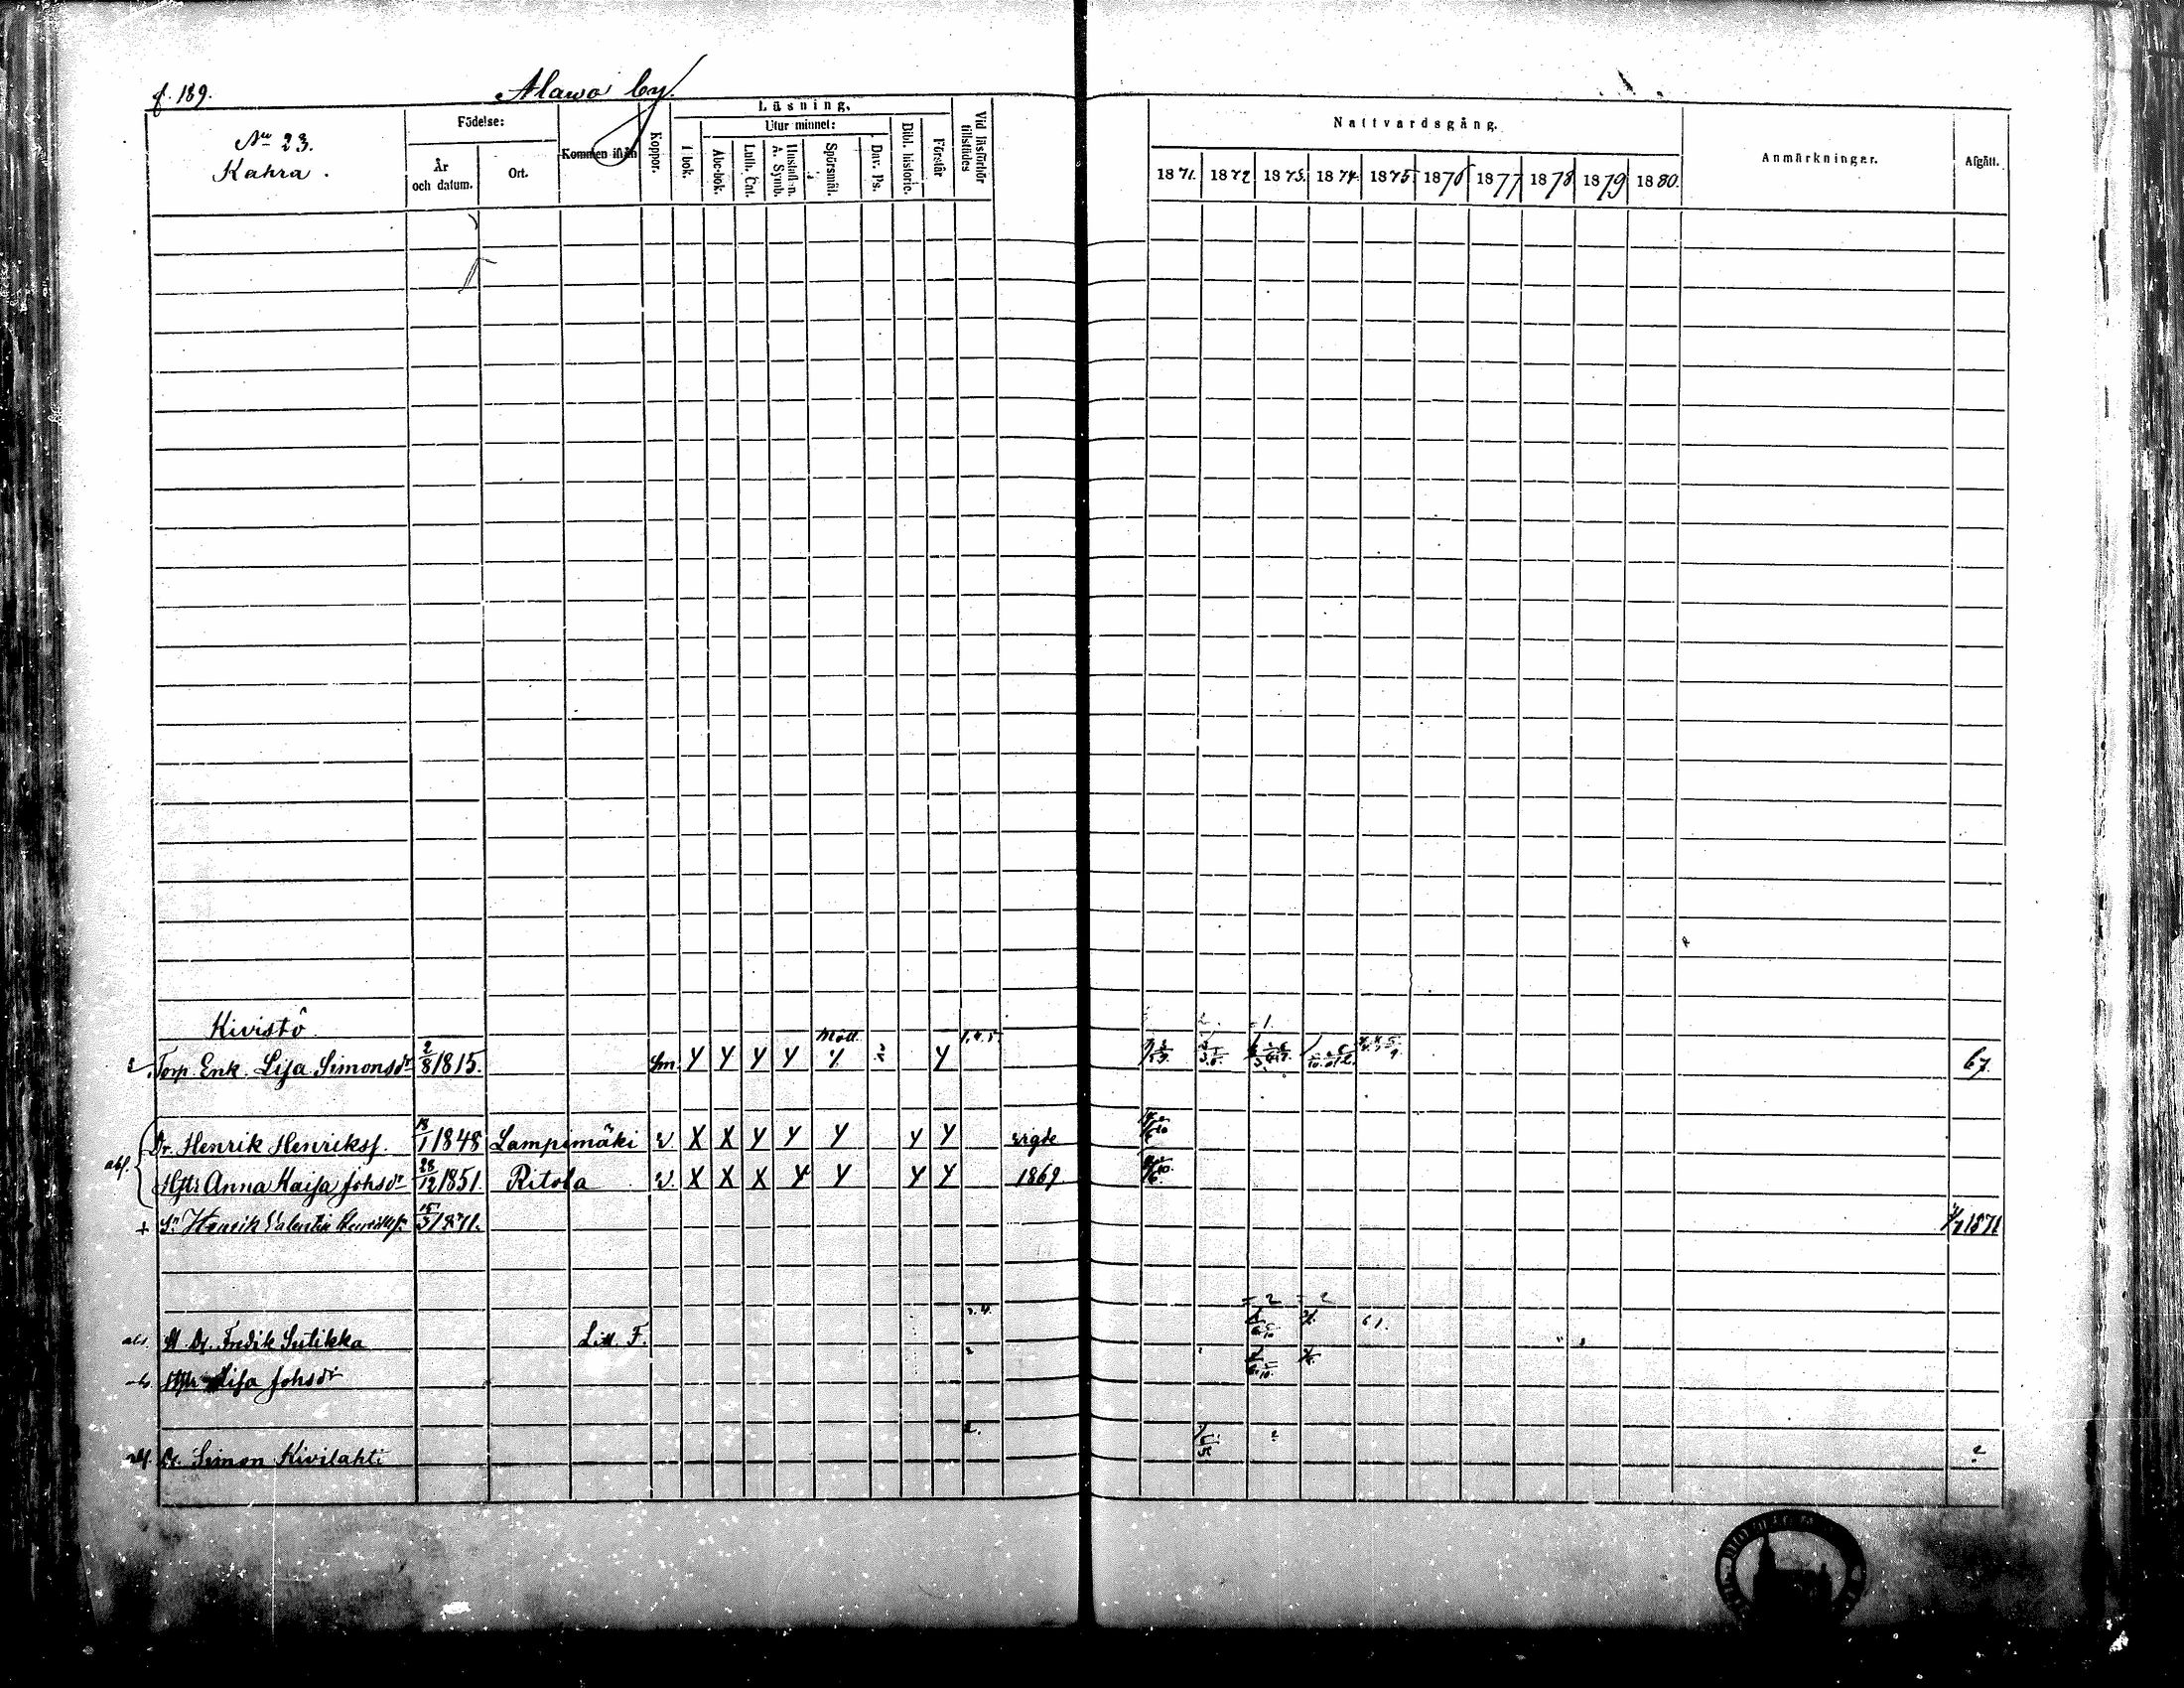 f. 189.
Alawo by.
No 23.
Kahra.
Födelse:
År och datum.
Ort.
Kommen ifrån
Koppor.
Läsning.
I bok.
Utur minnet:
Abc-bok.
Luth. Cat.
Hustaflan. A. Symb.
Spörsmål.
Dav. Ps.
Bibl. historie.
Förstår
Vid läsförhör tillstädes
Nattvardsgång.
1871. 1872 1873. 1874. 1875 1876 1877 1878 1879 1880.
Anmärkningar.
Afgått.
Kivistö
Torp. Enk. Lisa Simonsdr 2/8 1815. Y Y Y Y Y 67.
Dr. Henrik Henrikss. 18/1 1848 Lampimäki v. X X Y Y Y Y Y vigde
Hstr Anna Kaisa Johsdr 28/12 1851. Ritola v. X X X Y Y Y Y 1869
+ Sn Henrik Valentin Henrikss. 15/3 1871. 1871
Dr. Fredik Sutikka Litt. F.
Lisa Johsdr
Dr. Simon Kivilahti